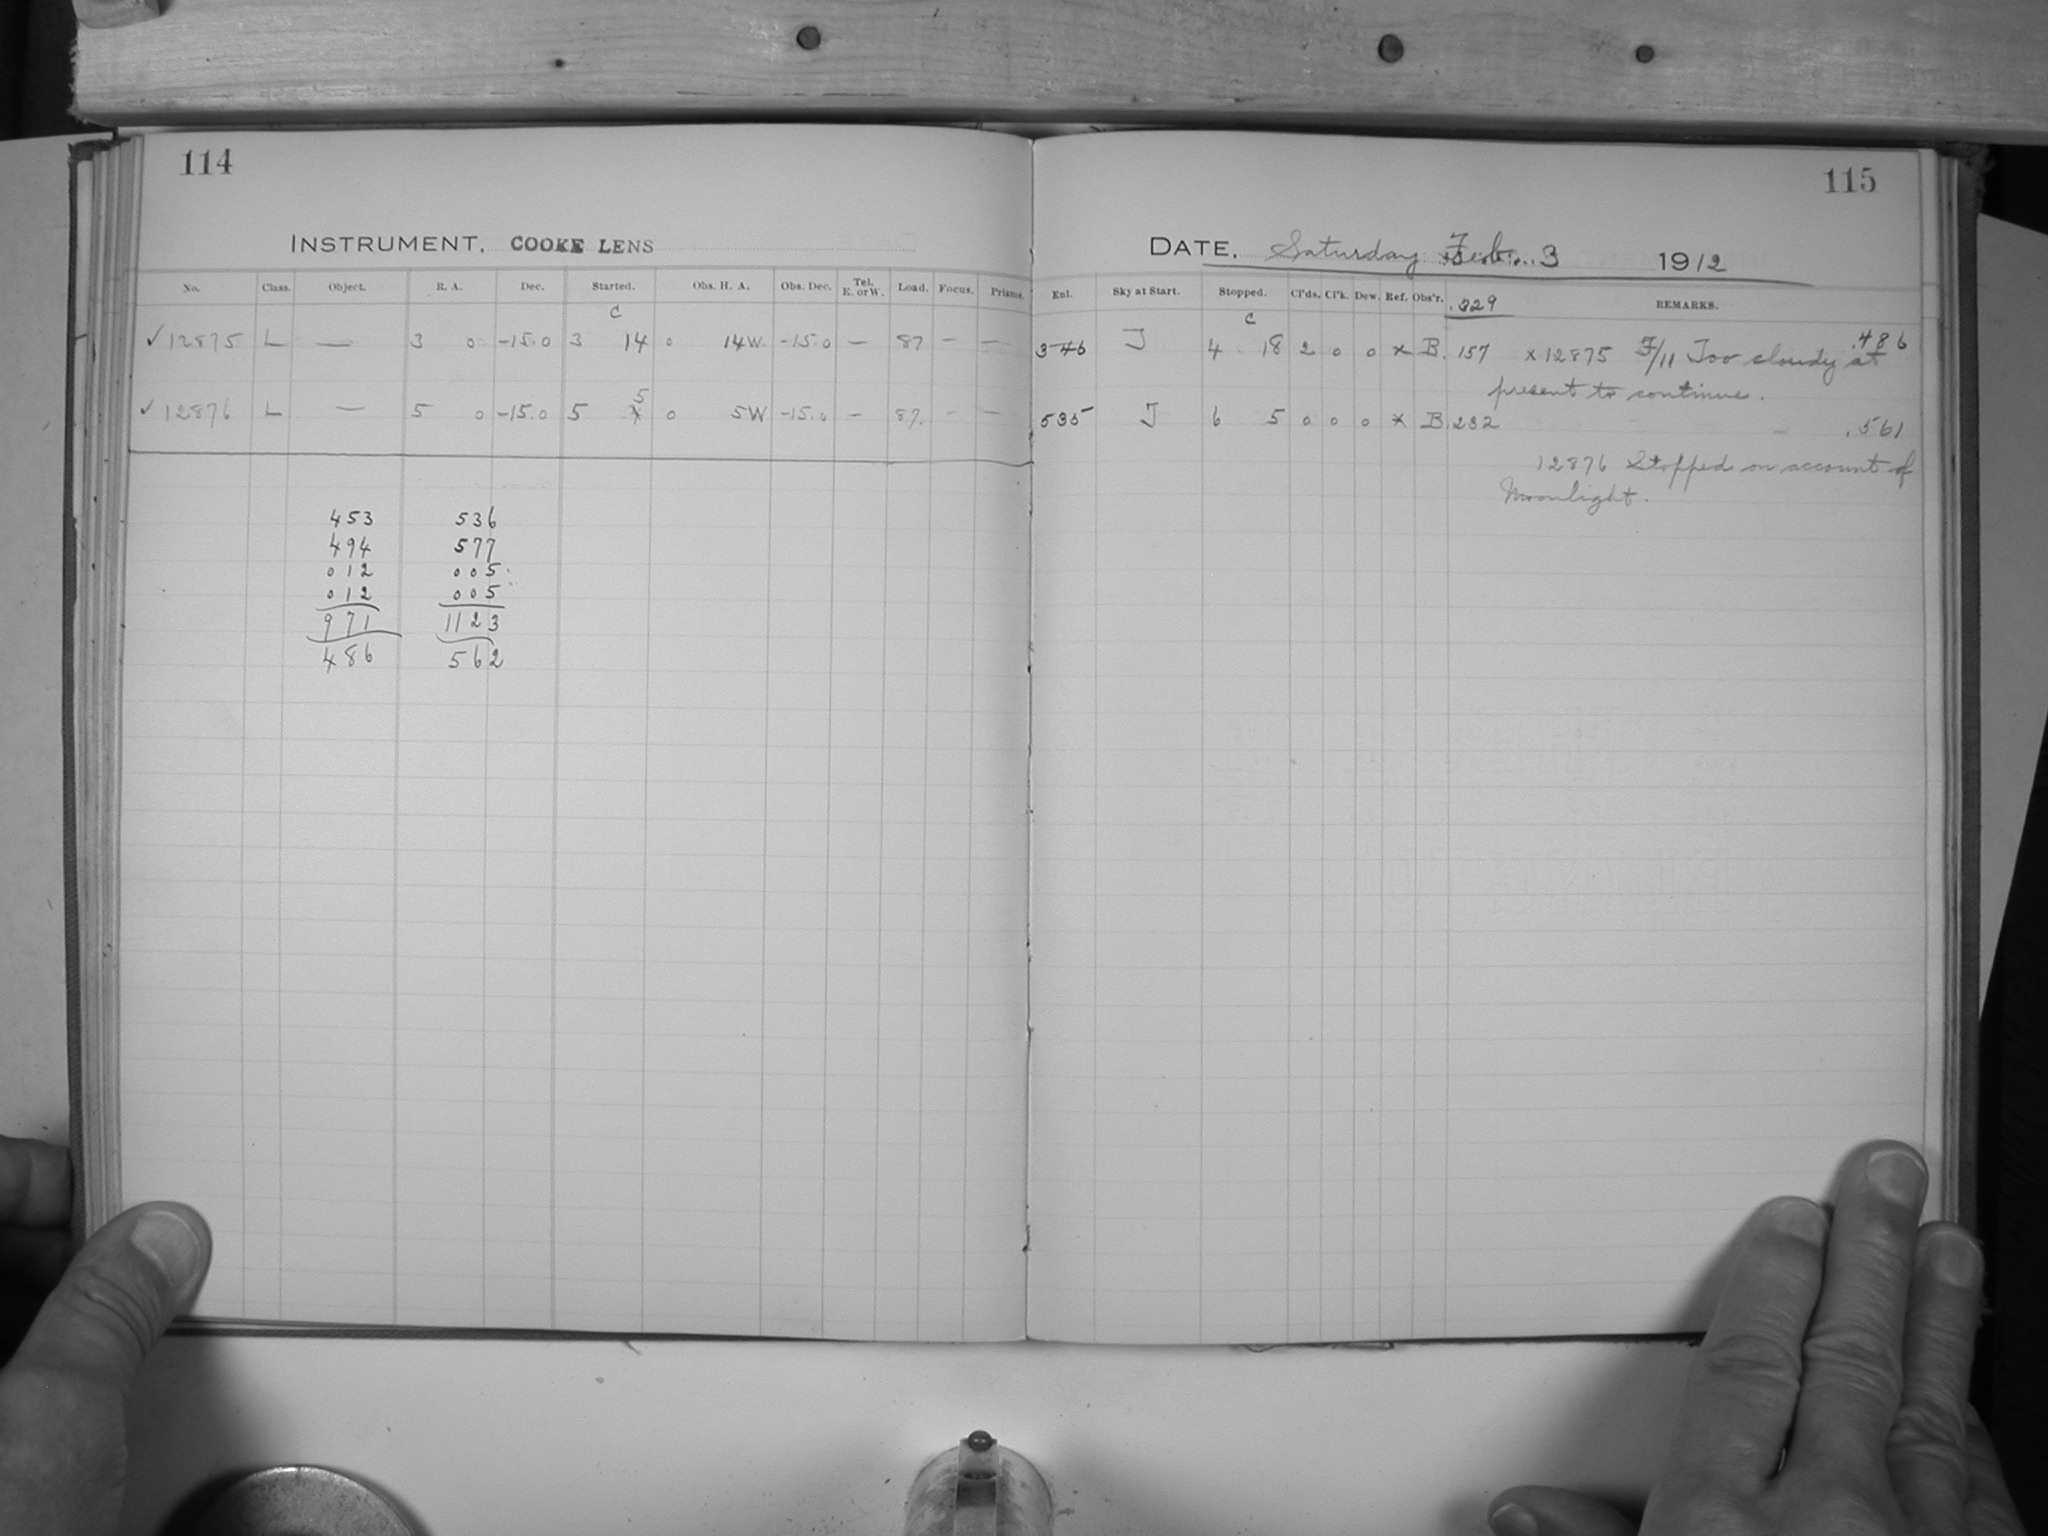 114
INSTRUMENT. COOKE LENS
No. Class. Object. R. A. Dec. Started. Obs. H. A. Obs. Dec. Tel. E. or W. Load. Focus. Prisms.
c
✓ 12875 L — 3 0 -15.0 3 14 0 14W -15.0 — 87 — —
5
✓ 12876 L — 5 0 -15.0 5 0 5W -15.0 — 87. — —
453 536
494 577
012 005
012 005
971 1123
486 562
115
DATE. Saturday Feb. 3 1912
Enl. Sky at Start. Stopped. Cl'ds. Cl'k. Dew. Ref. Obs'r. .329 REMARKS.
c
346 J 4 18 2 0 0 x B. 157 x 12875 F/11 Too cloudy at .486
present to continue.
535 J 6 5 0 0 0 x B. 232 .561
12876 Stopped on account of
Moonlight.